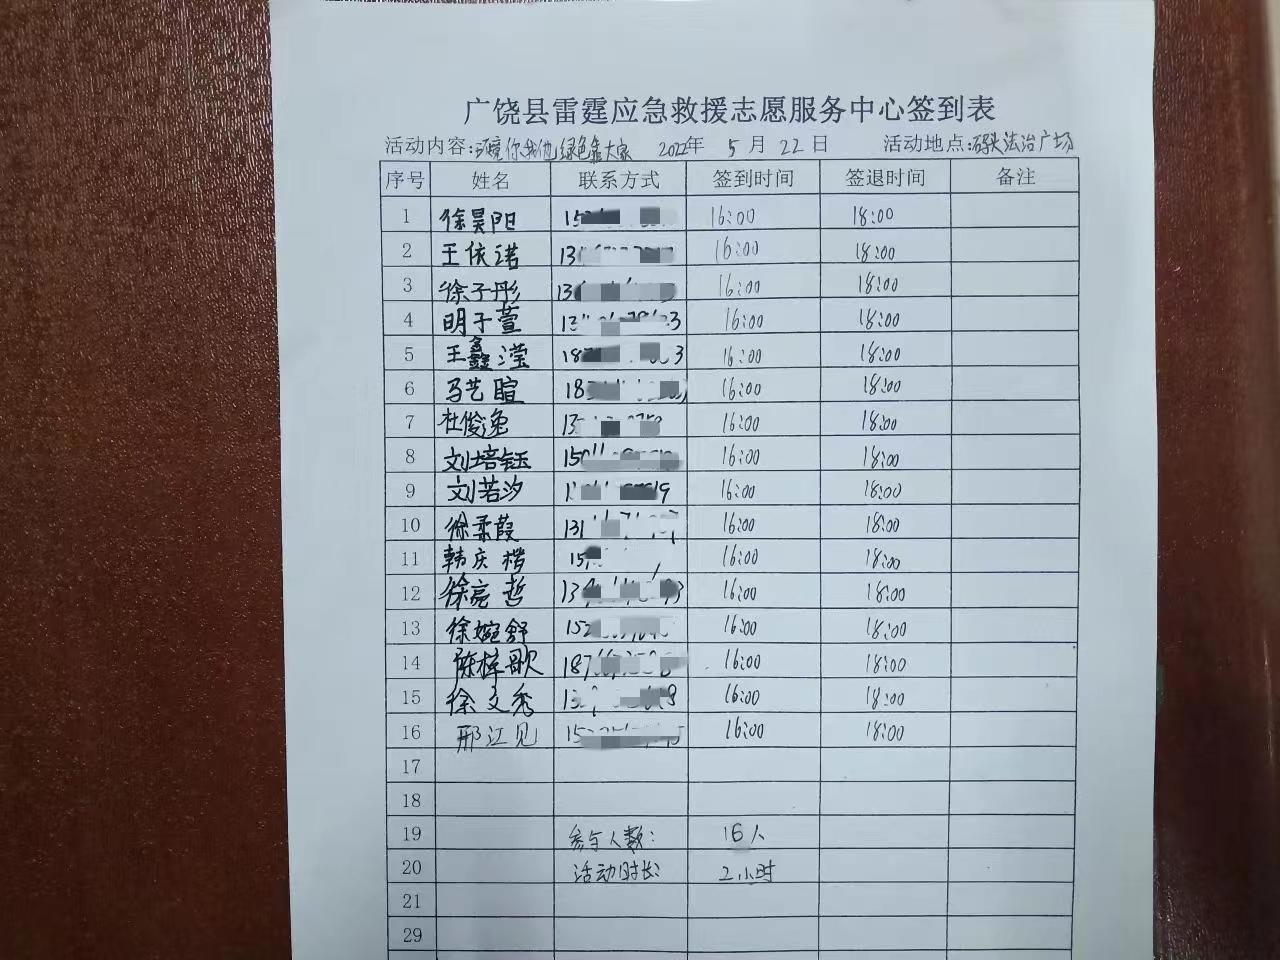 广饶县雷霆应急救援志愿服务中心签到表
活动内容:环境你我他 绿色靠大家 2022年 5月22日 活动地点:码头法治广场
序号 姓名 联系方式 签到时间 签退时间 备注
1 徐昊阳 15 16:00 18:00
2 王依诺 13 16:00 18:00
3 徐子彤 13 16:00 18:00
4 明子萱 13 3 16:00 18:00
5 王鑫滢 18 3 16:00 18:00
6 马艺暄 18 16:00 18:00
7 杜俊逸 13 16:00 18:00
8 刘培钰 150 16:00 18:00
9 刘若汐 19 16:00 18:00
10 徐柔葭 131 16:00 18:00
11 韩庆楷 15 16:00 18:00
12 徐亮哲 13 3 16:00 18:00
13 徐婉舒 152 16:00 18:00
14 陈梓歌 187 16:00 18:00
15 徐文秀 13 8 16:00 18:00
16 邢江见 15 5 16:00 18:00
17
18
19 参与人数: 16人
20 活动时长: 2小时
21
29